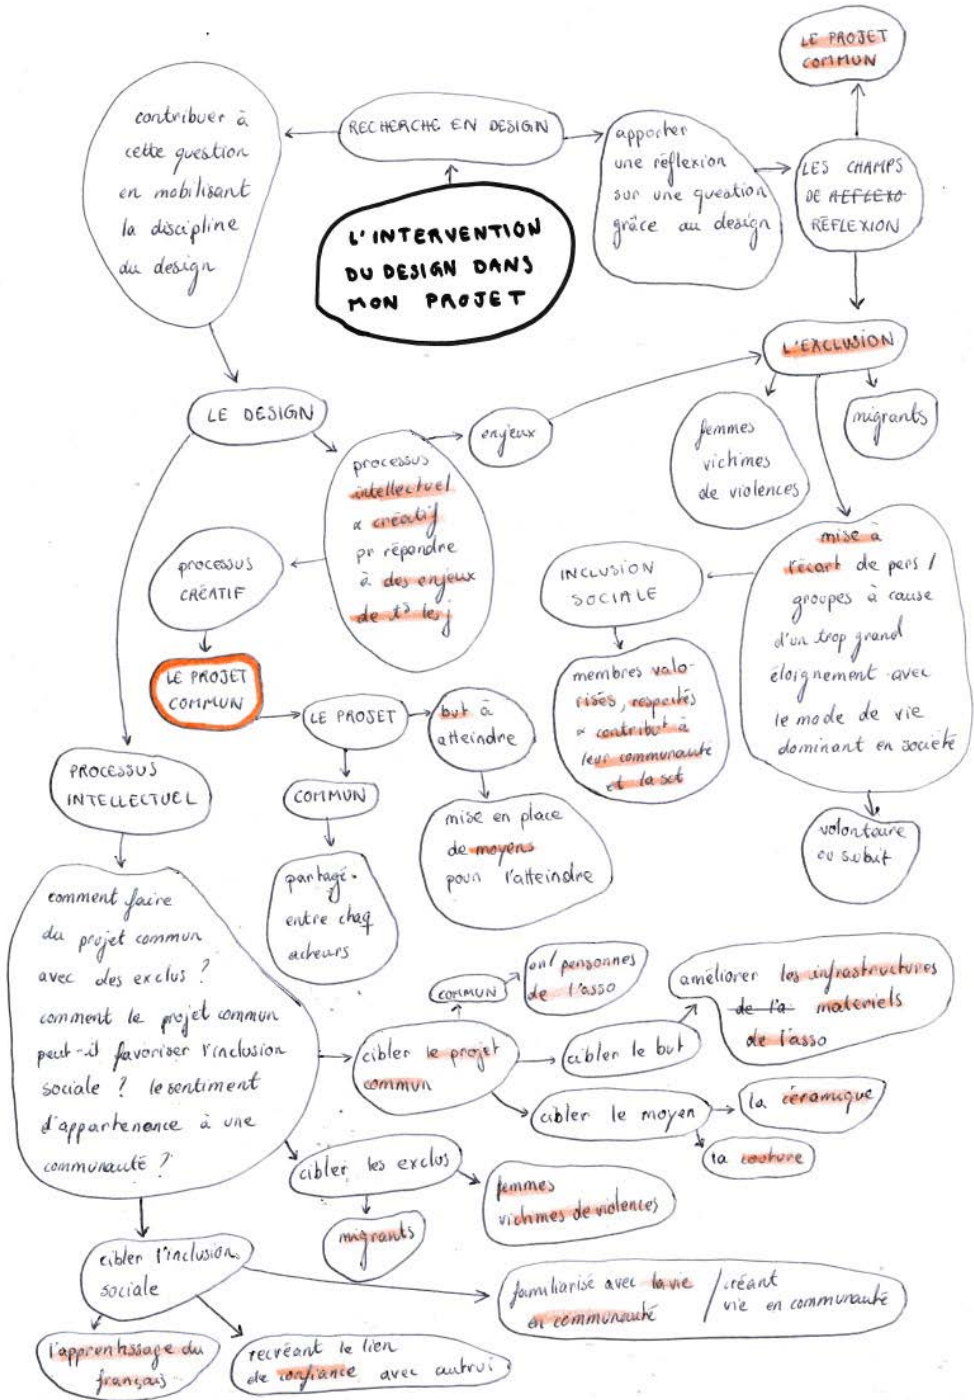 LE PROJET
COMMUN
contribuer à
cette question
en mobilisant
la discipline
du design
RECHERCHE EN DESIGN
apporter
une réflexion
sur une question
grâce au design
LES CHAMPS
DE REFLEXO
RÉFLEXION
L'INTERVENTION
DU DESIGN DANS
MON PROJET
L'EXCLUSION
LE DESIGN
enjeux
femmes
victimes
de violences
migrants
processus
intellectuel
∝ créatif
pr répondre
à des enjeux
de ts les j
processus
CRÉATIF
INCLUSION
SOCIALE
mise à
l'écart de pers /
groupes à cause
d'un trop grand
éloignement avec
le mode de vie
dominant en société
LE PROJET
COMMUN
LE PROJET
but à
atteindre
membres valo-
risés, respectés
∝ contribut à
leur communauté
et la sct
PROCESSUS
INTELLECTUEL
COMMUN
mise en place
de moyens
pour l'atteindre
volontaire
ou subit
partagé
entre chaq
acteurs
comment faire
du projet commun
avec des exclus ?
comment le projet commun
peut-il favoriser l'inclusion
sociale ? le sentiment
d'appartenance à une
communauté ?
COMMUN
ont personnes
de l'asso
améliorer les infrastructures
de l'a matériels
de l'asso
cibler le projet
commun
cibler le but
cibler le moyen
la céramique
la couture
cibler les exclus
femmes
victimes de violences
migrants
cibler l'inclusion
sociale
familiarisé avec la vie
en communauté
/ créant
vie en communauté
l'apprentissage du
français
recréant le lien
de confiance avec autrui